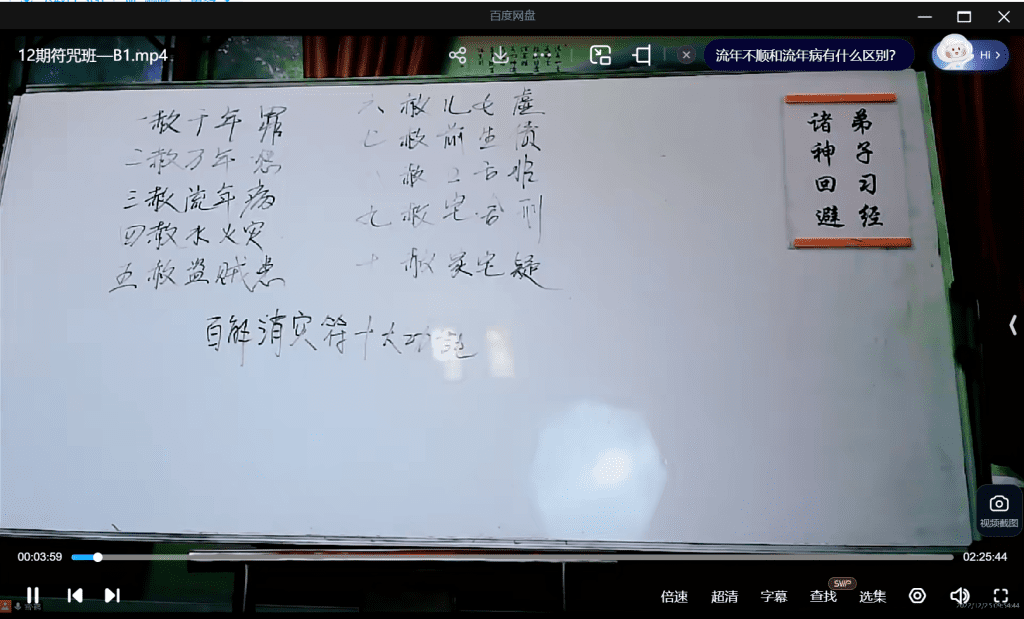 百度网盘
12期符咒班—B1.mp4
流年不顺和流年病有什么区别?
Hi
一赦千年罪
二赦万年
三赦流年病
四赦水火灾
五赦盗贼患
六赦儿女虚
七赦前生债
赦口舌
九赦宅舍刑
十赦冥宅疑
百解消灾符十大功能
弟子习经
诸神回避
视频截图
00:03:59
02:25:44
倍速
超清
字幕
查找
SVIP
选集